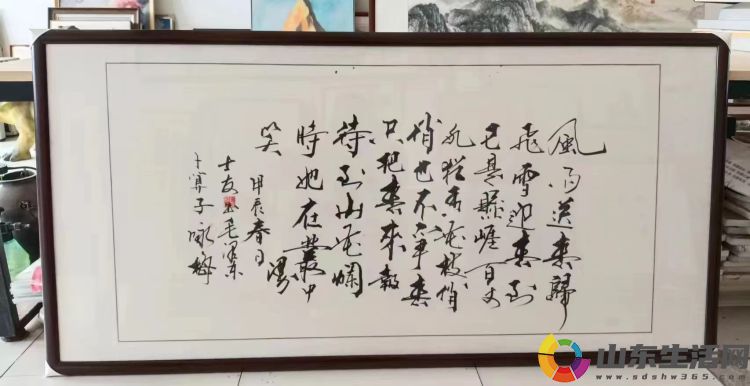 風雨送春歸
飛雪迎春到
已是懸崖百丈
冰猶有花枝俏
俏也不爭春
只把春來報
待到山花爛
時她在叢中
笑 漫
甲辰春日
士友書毛澤東
卜算子詠梅
山东生活网
www.sdshw365.com